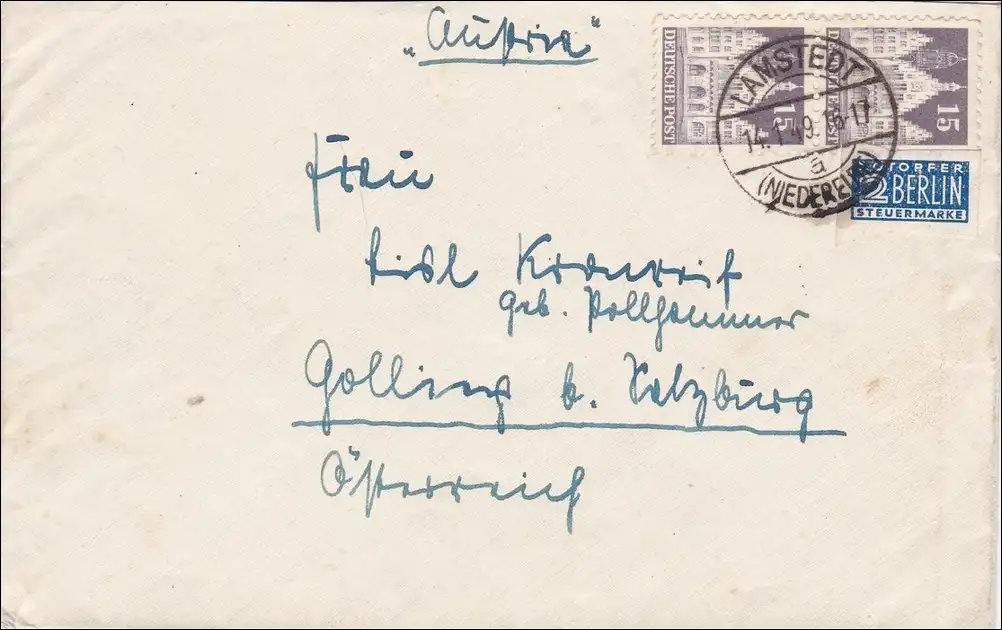 „Austria“
DEUTSCHE POST
15
DEUTSCHE POST
15
LAMSTEDT
14.1.49.16-17
a
(NIEDERELBE)
NOTOPFER
2 BERLIN
STEUERMARKE
Frau
Lisl Kronreif
geb. Pollhammer
Golling b. Salzburg
Österreich